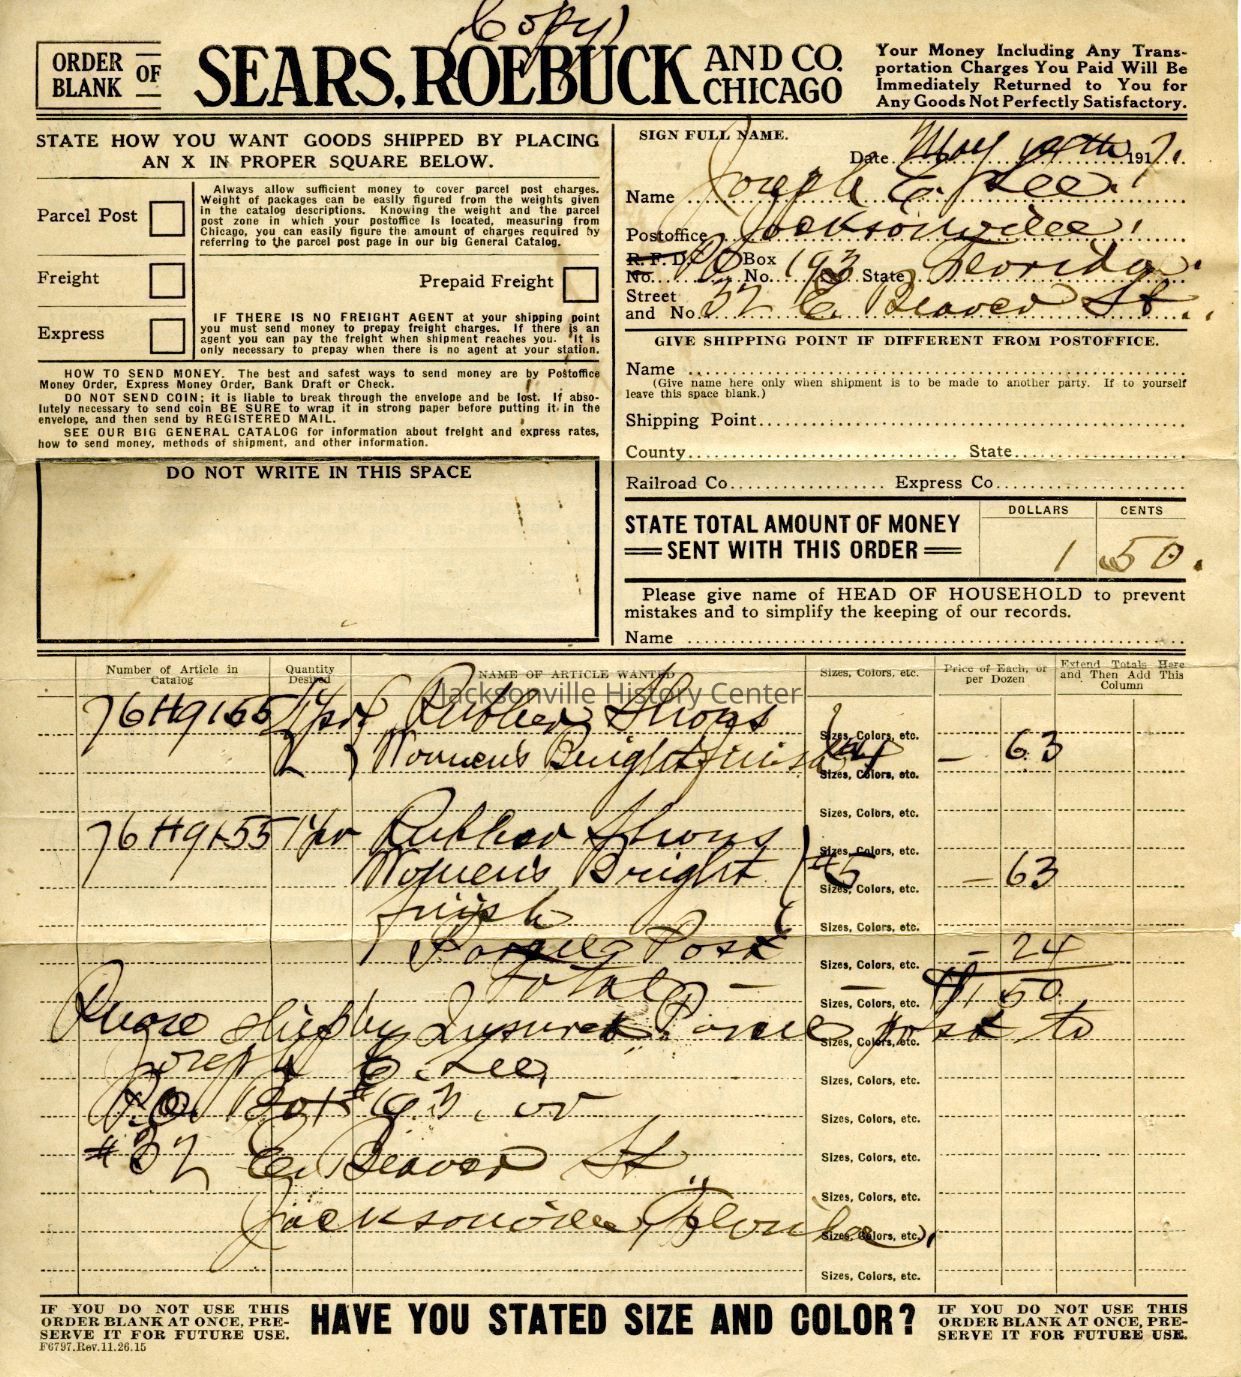 (Copy)
ORDER BLANK OF
SEARS, ROEBUCK AND CO. CHICAGO
Your Money Including Any Trans-
portation Charges You Paid Will Be
Immediately Returned to You for
Any Goods Not Perfectly Satisfactory.
STATE HOW YOU WANT GOODS SHIPPED BY PLACING
AN X IN PROPER SQUARE BELOW.
Parcel Post
Always allow sufficient money to cover parcel post charges.
Weight of packages can be easily figured from the weights given
in the catalog descriptions. Knowing the weight and the parcel
post zone in which your postoffice is located, measuring from
Chicago, you can easily figure the amount of charges required by
referring to the parcel post page in our big General Catalog.
Freight
Prepaid Freight
Express
IF THERE IS NO FREIGHT AGENT at your shipping point
you must send money to prepay freight charges. If there is an
agent you can pay the freight when shipment reaches you. It is
only necessary to prepay when there is no agent at your station.
HOW TO SEND MONEY. The best and safest ways to send money are by Postoffice
Money Order, Express Money Order, Bank Draft or Check.
DO NOT SEND COIN; it is liable to break through the envelope and be lost. If abso-
lutely necessary to send coin BE SURE to wrap it in strong paper before putting it in the
envelope, and then send by REGISTERED MAIL.
SEE OUR BIG GENERAL CATALOG for information about freight and express rates,
how to send money, methods of shipment, and other information.
DO NOT WRITE IN THIS SPACE
SIGN FULL NAME.
Date May 1917.
Name Joseph E. Lee.
Postoffice Jacksonville
R. F. D. No. PO Box No. 193 State Florida.
Street and No. 32 E. Beaver St.
GIVE SHIPPING POINT IF DIFFERENT FROM POSTOFFICE.
Name
(Give name here only when shipment is to be made to another party. If to yourself
leave this space blank.)
Shipping Point
County State
Railroad Co. Express Co.
STATE TOTAL AMOUNT OF MONEY
SENT WITH THIS ORDER
DOLLARS CENTS
1 50.
Please give name of HEAD OF HOUSEHOLD to prevent
mistakes and to simplify the keeping of our records.
Name
Number of Article in Catalog
Quantity Desired
NAME OF ARTICLE WANTED
Sizes, Colors, etc.
Price of Each, or per Dozen
Extend Totals Here and Then Add This Column
Jacksonville History Center
76H9155 1 pr Rubber Shoes
Sizes, Colors, etc.
Women's Bright finish #4 — 63
Sizes, Colors, etc.
Sizes, Colors, etc.
76H9155 1 pr Rubber Shoes
Sizes, Colors, etc.
Women's Bright #5 — 63
Sizes, Colors, etc.
finish
Sizes, Colors, etc.
Parcel Post — 24
Sizes, Colors, etc.
Total — — $1 50
Sizes, Colors, etc.
Please ship by Insured Parcel post to
Sizes, Colors, etc.
Joseph E. Lee,
Sizes, Colors, etc.
P.O. Box # 193, or
Sizes, Colors, etc.
#32 E. Beaver St
Sizes, Colors, etc.
Sizes, Colors, etc.
Jacksonville, Florida.
Sizes, Colors, etc.
Sizes, Colors, etc.
IF YOU DO NOT USE THIS
ORDER BLANK AT ONCE, PRE-
SERVE IT FOR FUTURE USE.
F6797.Rev.11.26.15
HAVE YOU STATED SIZE AND COLOR?
IF YOU DO NOT USE THIS
ORDER BLANK AT ONCE, PRE-
SERVE IT FOR FUTURE USE.